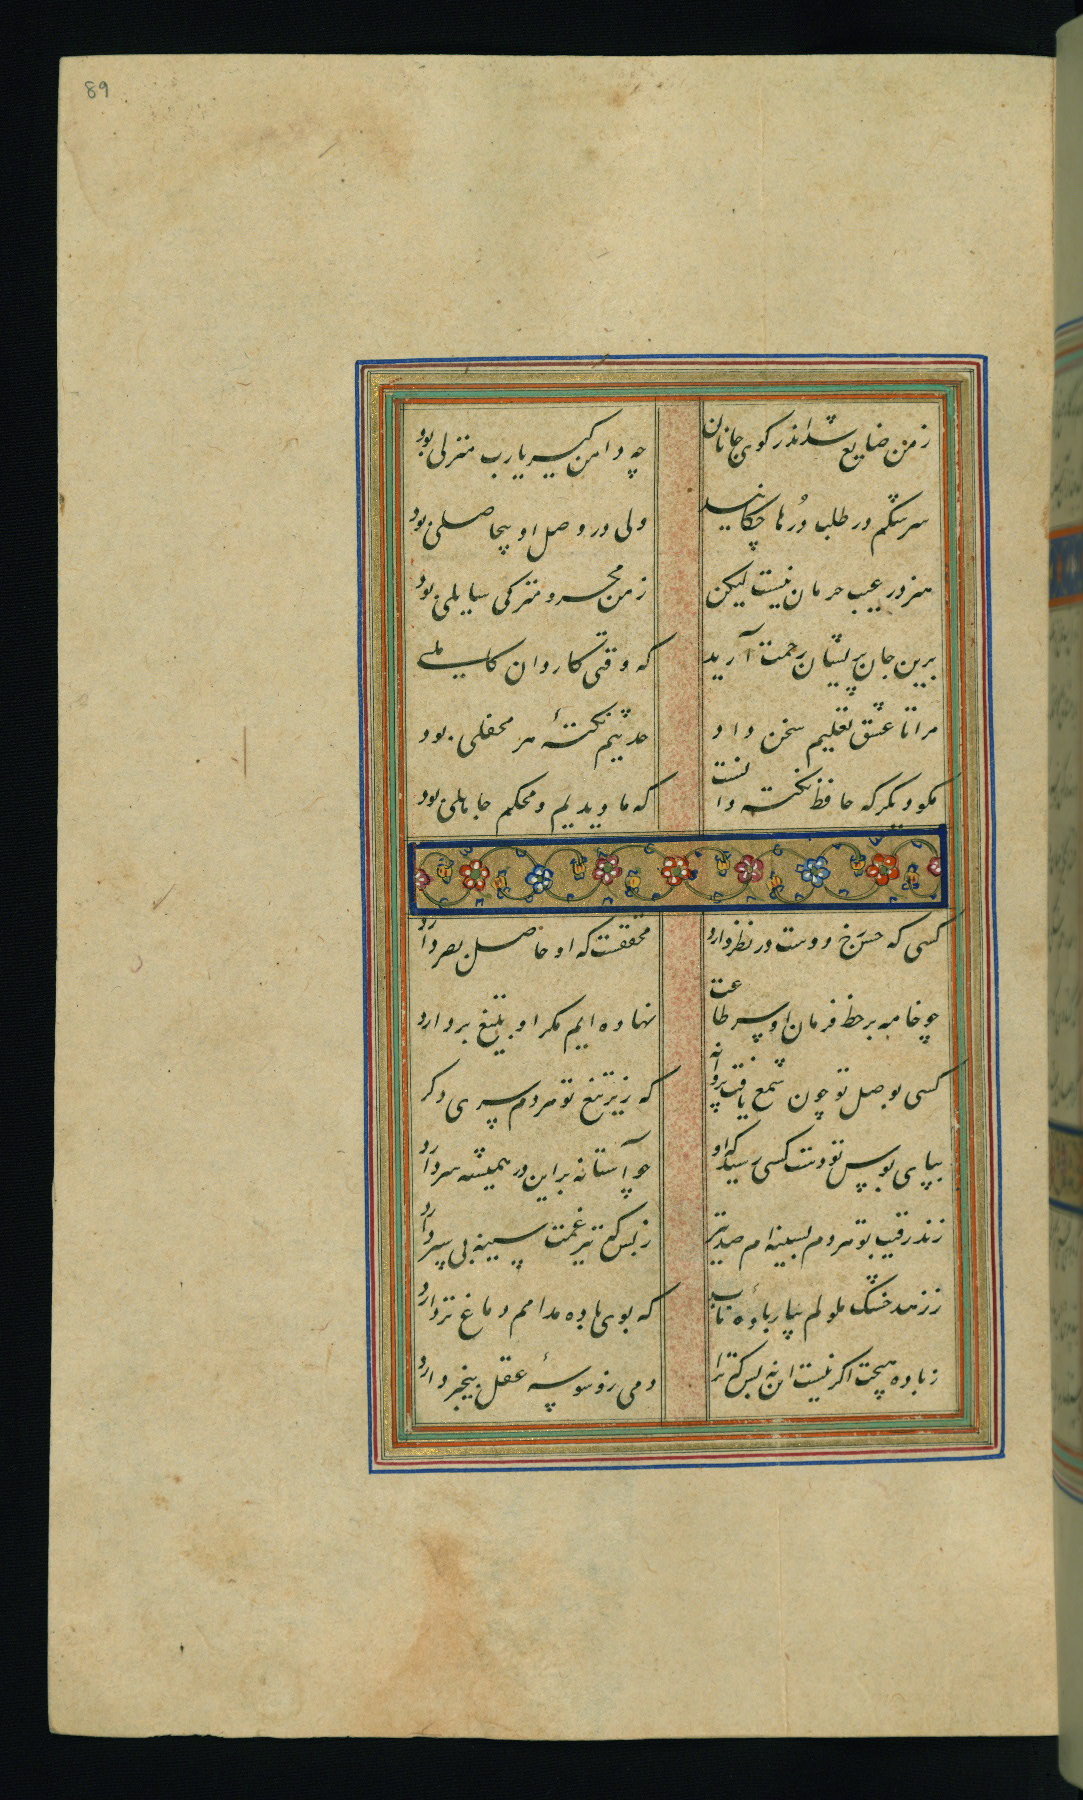 89
ز من ضایع شد اندر کوی جانان چه دامن کیر یارب منزلی بود
سرشکم در طلب دُرها چکانید ولی در وصل او بیحاصلی بود
هنر در عیب حرمان نیست لیکن ز من محروم تر کی سایلی بود
برین جان پریشان رحمت آرید که وقتی کاروان کاملی
مرا تا عشق تعلیم سخن داد حدیثم نکتهٔ هر محفلی بود
مکو دیکر که حافظ نکته دانست که ما دیدیم و محکم جاهلی بود
کسی که حسن خ دوست در نظر دارد محققست که او حاصل بصر دارد
چو خامه بر خط فرمان او سر طاعت نهاده ایم مکر او بتیغ بردارد
کسی بوصل تو چون شمع یافت پروانه که زیر تیغ تو هر دم سری دکر
بپای بوس تو دست کسی رسید که او چو آستانه براین در همیشه سر دارد
زند رقیب تو هر دم بسینه ام صد تیر ز بس که تیر غمت سینه بی سپر دارد
ز زهد خشک ملولم بیار بادهٔ ناب که بوی باده مدامم دماغ تر دارد
ز باده هیچت اکر نیست این نه بس که ترا دمی ز وسوسهٔ عقل بیخبر دارد